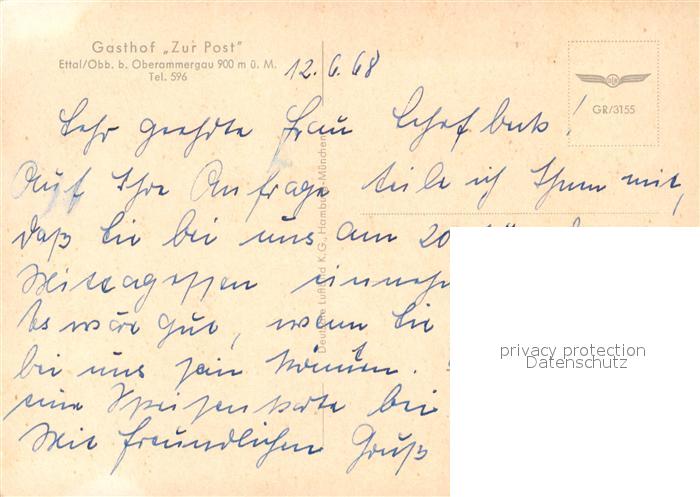 Gasthof „Zur Post"
Ettal/Obb. b. Oberammergau 900 m ü. M.
Tel. 596
12.6.68
GR/3155
Sehr geehrte Frau
Auf Ihre Anfrage teile ich Ihnen mit,
daß Sie bei uns am 20.
Mittagessen
Es wäre gut, wenn Sie
bei uns sein könnten.
eine Speisenkarte bei
Mit freundlichem Gruß
Deutsche Luftbild K.G., Hamburg-München
privacy protection
Datenschutz